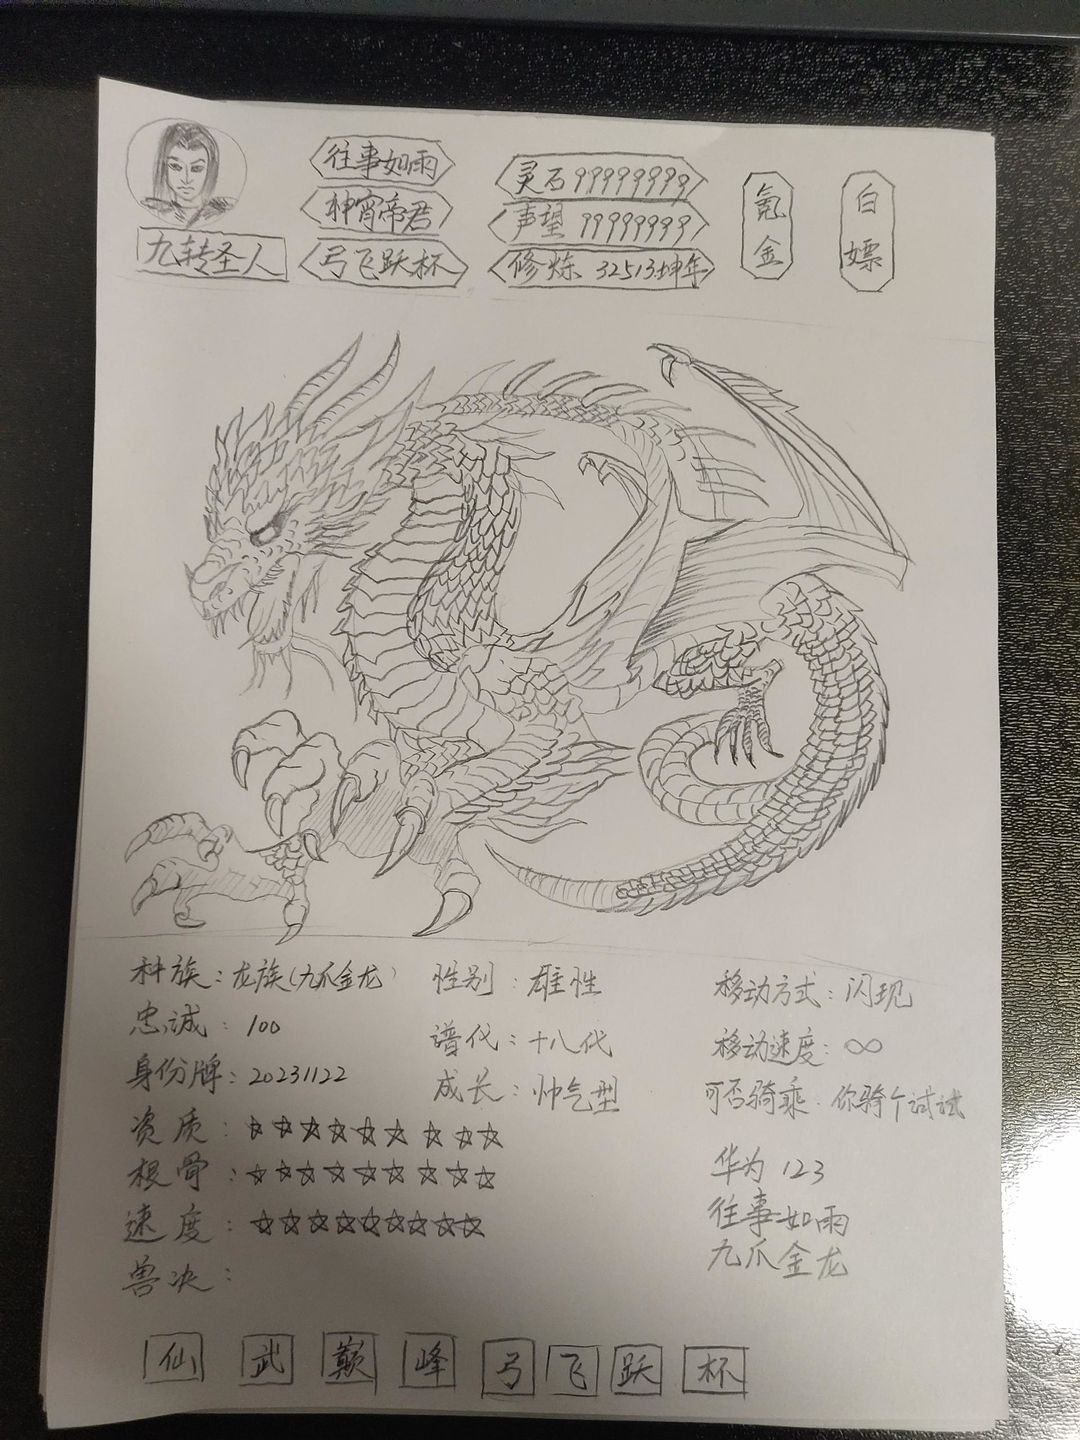 往事如雨
神宵帝君
弓飞跃杯
九转圣人
灵石 99999999
声望 99999999
修炼 32513坤年
氪金
白嫖
种族：龙族（九爪金龙）
性别：雄性
移动方式：闪现
忠诚：100
谱代：十八代
移动速度：∞
身份牌：20231122
成长：帅气型
可否骑乘：你骑个试试
资质：☆☆☆☆☆☆☆☆☆
根骨：☆☆☆☆☆☆☆☆☆
速度：☆☆☆☆☆☆☆☆☆
兽决：
华为 123
往事如雨
九爪金龙
仙武巅峰弓飞跃杯